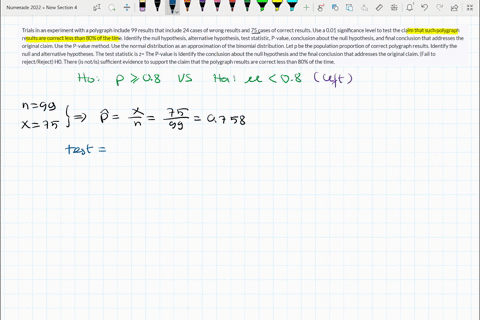 Numerade 2022 » New Section 4
Trials in an experiment with a polygraph include 99 results that include 24 cases of wrong results and 75 cases of correct results. Use a 0.01 significance level to test the claim that such polygraph
results are correct less than 80% of the time. Identify the null hypothesis, alternative hypothesis, test statistic, P-value, conclusion about the null hypothesis, and final conclusion that addresses the
original claim. Use the P-value method. Use the normal distribution as an approximation of the binomial distribution. Let p be the population proportion of correct polygraph results. Identify the
null and alternative hypotheses. The test statistic is z= The P-value is Identify the conclusion about the null hypothesis and the final conclusion that addresses the original claim. (Fail to
reject/Reject) H0. There (is not/is) sufficient evidence to support the claim that the polygraph results are correct less than 80% of the time.
Ho: p ≥ 0.8 VS Ha: μ < 0.8 (left)
n=99
x=75 } ⇒ p̂ = x/n = 75/99 = 0.758
test =